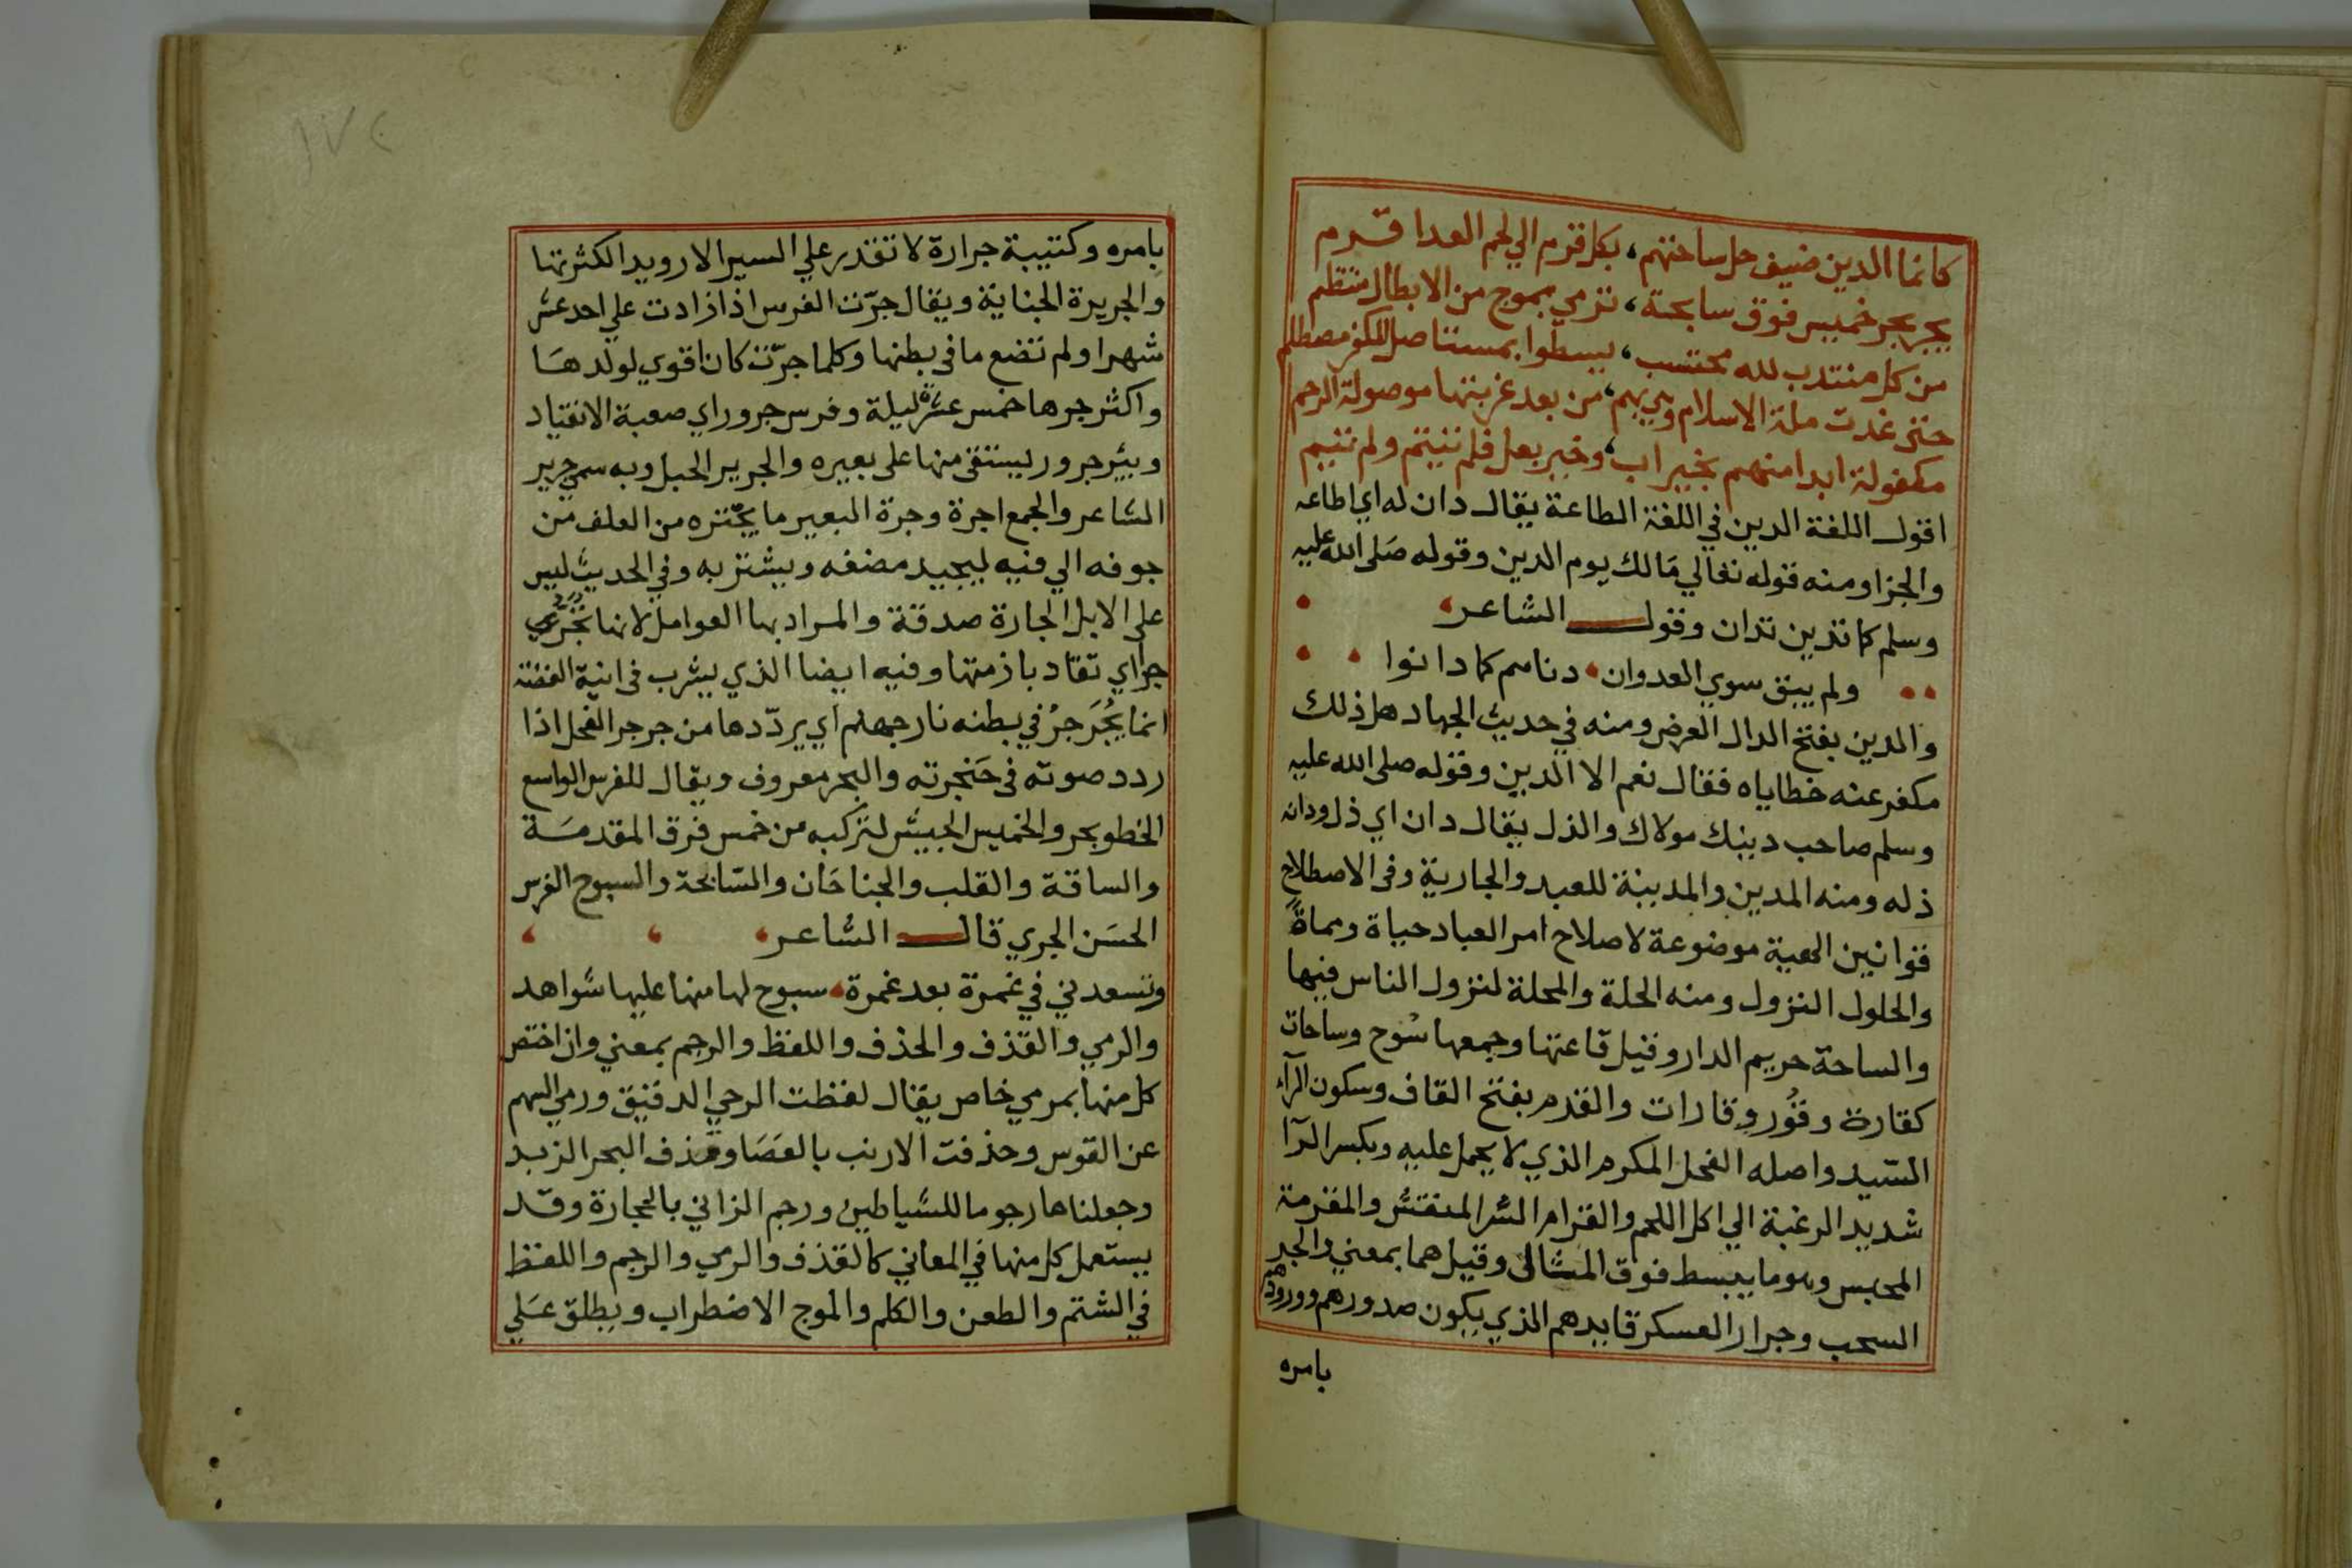 كانما الدين ضيف حل ساحتهم، بكل قرم الي لحم العدا قرم
يجر بحر خميس فوق سابحة، ترمي بموج من الابطال منتظم
من كل منتدب لله محتسب، يسطوا بمستاصل للكفر مصطلم
حتي غدت ملة الاسلام وهي بهم، من بعد غربتها موصولة الرحم
مكفولة ابدا منهم بخير اب، وخير بعل فلم تيتم ولم تئيم
اقول اللغة الدين في اللغة الطاعة يقال دان له اي اطاعه
والجزا ومنه قوله تعالي مالك يوم الدين وقوله صلى الله عليه
وسلم كما تدين تدان وقول الشاعر
ولم يبق سوي العدوان دناهم كما دانوا
والدين بفتح الدال القرض ومنه في حديث الجهاد هل ذلك
مكفر عنه خطاياه فقال نعم الا الدين وقوله صلى الله عليه
وسلم صاحب دينك مولاك والذل يقال دان اي ذل ودانه
ذله ومنه المدين والمدينة للعبد والجارية وفي الاصطلاح
قوانين الهية موضوعة لاصلاح امر العباد حياة ومماة
والحلول النزول ومنه الحلة والمحلة لنزول الناس فيها
والساحة حريم الدار وقيل قاعتها وجمعها سوح وساحات
كقارة وقور وقارات والقرم بفتح القاف وسكون الرآء
السيد واصله الفحل المكرم الذي لا يحمل عليه وبكسر الرآ
شديد الرغبة الي اكل اللحم والقرام الستر المنقش والمقرمة
المحبس وهو ما يبسط فوق المثال وقيل هما بمعني والجر
السحب وجرار العسكر قايدهم الذي يكون صدورهم وورودهم
بامره
بامره وكتيبة جرارة لا تقدر علي السير الا رويدا لكثرتها
والجريرة الجناية ويقال جرّت الفرس اذا زادت علي احد عشر
شهرا ولم تضع ما في بطنها وكلما جرّت كان اقوي لولدها
واكثر جرها خمس عشرة ليلة وفرس جرور اي صعبة الانقياد
وبير جرور يستقى منها على بعيره والجرير الحبل وبه سمي جرير
الشاعر والجمع اجرة وجرة البعير ما يجتره من العلف من
جوفه الي فيه ليجيد مضغه ويشتر به وفي الحديث ليس
على الابل الجارة صدقة والمراد بها العوامل لانها تجر
جرا اي تقاد بازمتها وفيه ايضا الذي يشرب في انية الفضة
انما يُجَرجرُ في بطنه نار جهنم اي يرددها من جرجر الفحل اذا
ردد صوته في حنجرته والبحر معروف ويقال للفرس الواسع
الخطو بحر والخميس الجيش لتركبه من خمس فرق المقدمة
والساقة والقلب والجناحان والسابحة والسبوح الفرس
الحسن الجري قال الشاعر
وتسعدني في غمرة بعد غمرة سبوح لها منها عليها شواهد
والرمي والقذف والحذف واللفظ والرجم بمعني وان اختص
كل منها بمرمي خاص يقال لفظت الرحي الدقيق ورمي السهم
عن القوس وحذفت الارنب بالعصا وقذف البحر الزبد
وجعلناها رجوما للشياطين ورجم الزاني بالحجارة وقد
يستعمل كل منها في المعاني كالقذف والرمي والرجم واللفظ
في الشتم والطعن والكلم والموج الاضطراب ويطلق علي